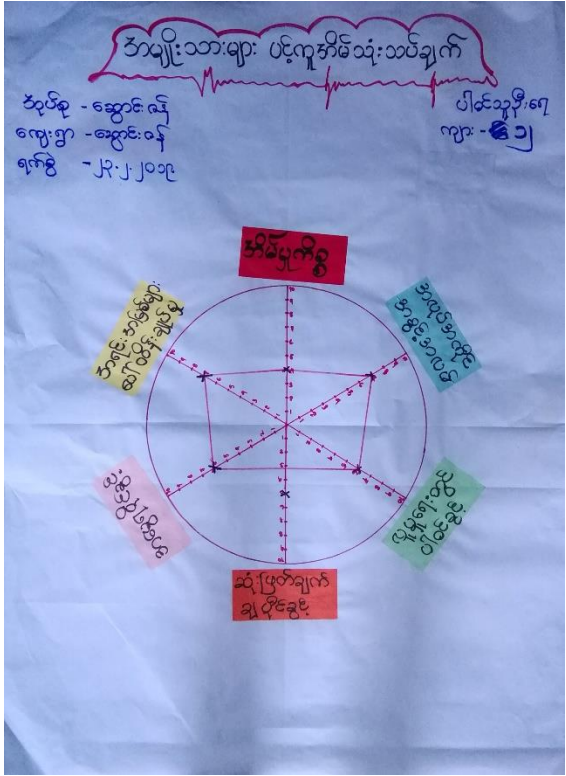 အမျိုးသားများ ပင့်ကူအိမ်သုံးသပ်ချက်
အုပ်စု - ဆောင်းဇန်
ကျေးရွာ - ဆောင်းဇန်
ရက်စွဲ - ၂၃.၂.၂၀၁၉
ပါဝင်သူဦးရေ
ကျား - ၁၂
အိမ်မှုကိစ္စ
အလုပ်အကိုင်
အခွင့်အလမ်း
လူမှုရေးတွင်
ပါဝင်ခွင့်
ဆုံးဖြတ်ချက်
ချပိုင်ခွင့်
အရင်းအမြစ်များ
ထိန်းချုပ်မှု